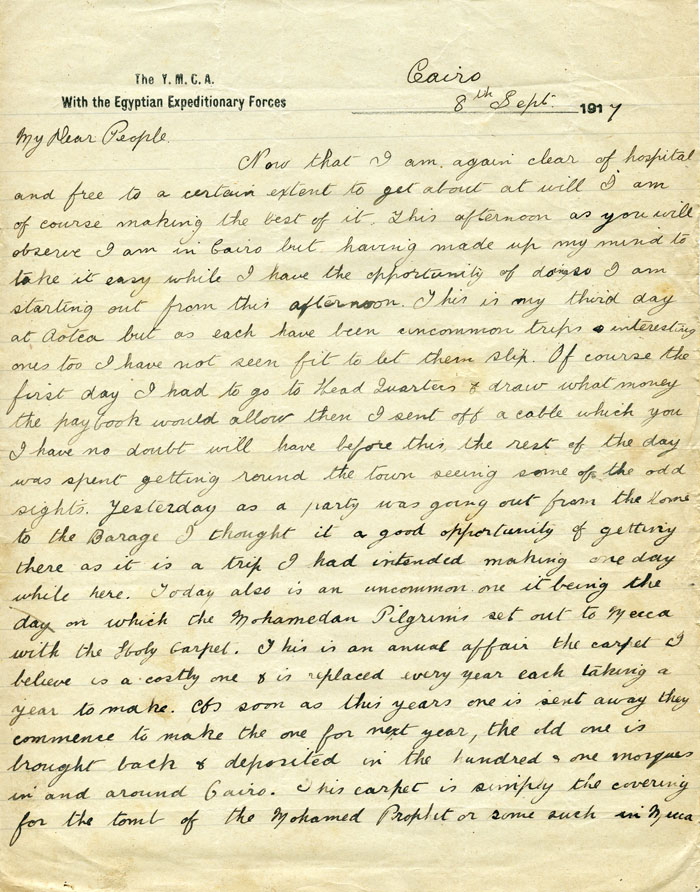 The Y. M. C. A.
With the Egyptian Expeditionary Forces
Cairo
8th Sept. 1917
My Dear People.
Now that I am again clear of hospital
and free to a certain extent to get about at will I am
of course making the best of it. This afternoon as you will
observe I am in Cairo but having made up my mind to
take it easy while I have the opportunity of doing so I am
starting out from this afternoon. This is my third day
at Aotea but as each have been uncommon trips & interesting
ones too I have not seen fit to let them slip. Of course the
first day I had to go to Head Quarters & draw what money
the paybook would allow then I sent off a cable which you
I have no doubt will have before this, the rest of the day
was spent getting round the town seeing some of the odd
sights. Yesterday as a party was going out from the Home
to the Barage I thought it a good opportunity of getting
there as it is a trip I had intended making one day
while here. Today also is an uncommon one it being the
day on which the Mohamedan Pilgrims set out to Mecca
with the Holy Carpet. This is an anual affair the carpet I
believe is a costly one & is replaced every year each taking a
year to make. As soon as this years one is sent away they
commence to make the one for next year, the old one is
brought back & deposited in the hundred & one mosques
in and around Cairo. This carpet is simply the covering
for the tomb of the Mohamed Prophet or some such in Mecca